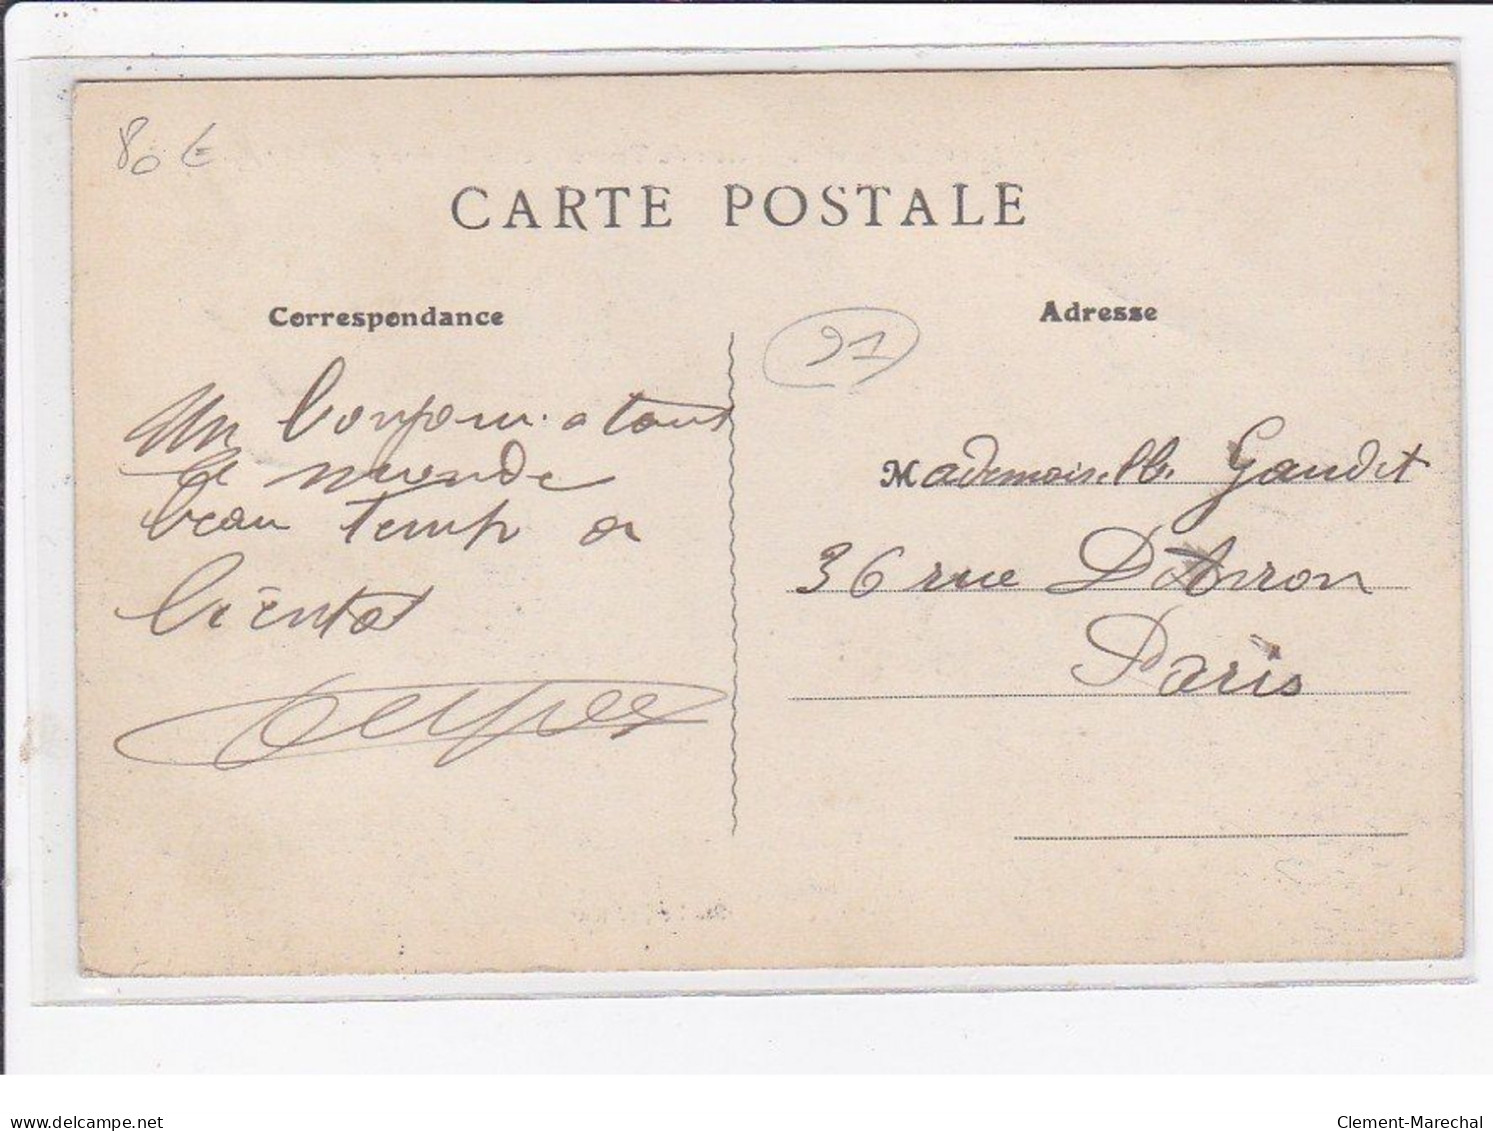 80 €
CARTE POSTALE
Correspondance
Adresse
91
Un bonjour a tout
le monde
beau temp a
bientot
Mademoiselle Gaudet
36 rue D'Avron
Paris
delcampe.net
Clement-Marechal